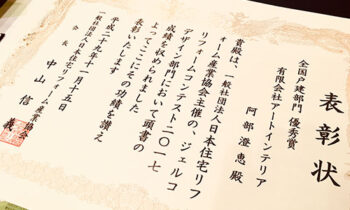 表彰状
全国戸建部門 優秀賞
有限会社アートインテリア
阿部 澄恵 殿
貴殿は、一般社団法人日本住宅リフ
ォーム産業協会主催の、ジェルコ
リフォームコンテスト二〇一七
デザイン部門において頭書の
成績を収められました
よってここにその功績を讃え
表彰いたします
平成二十九年十一月十五日
一般社団法人日本住宅リフォーム産業協会
会長 中山 信義